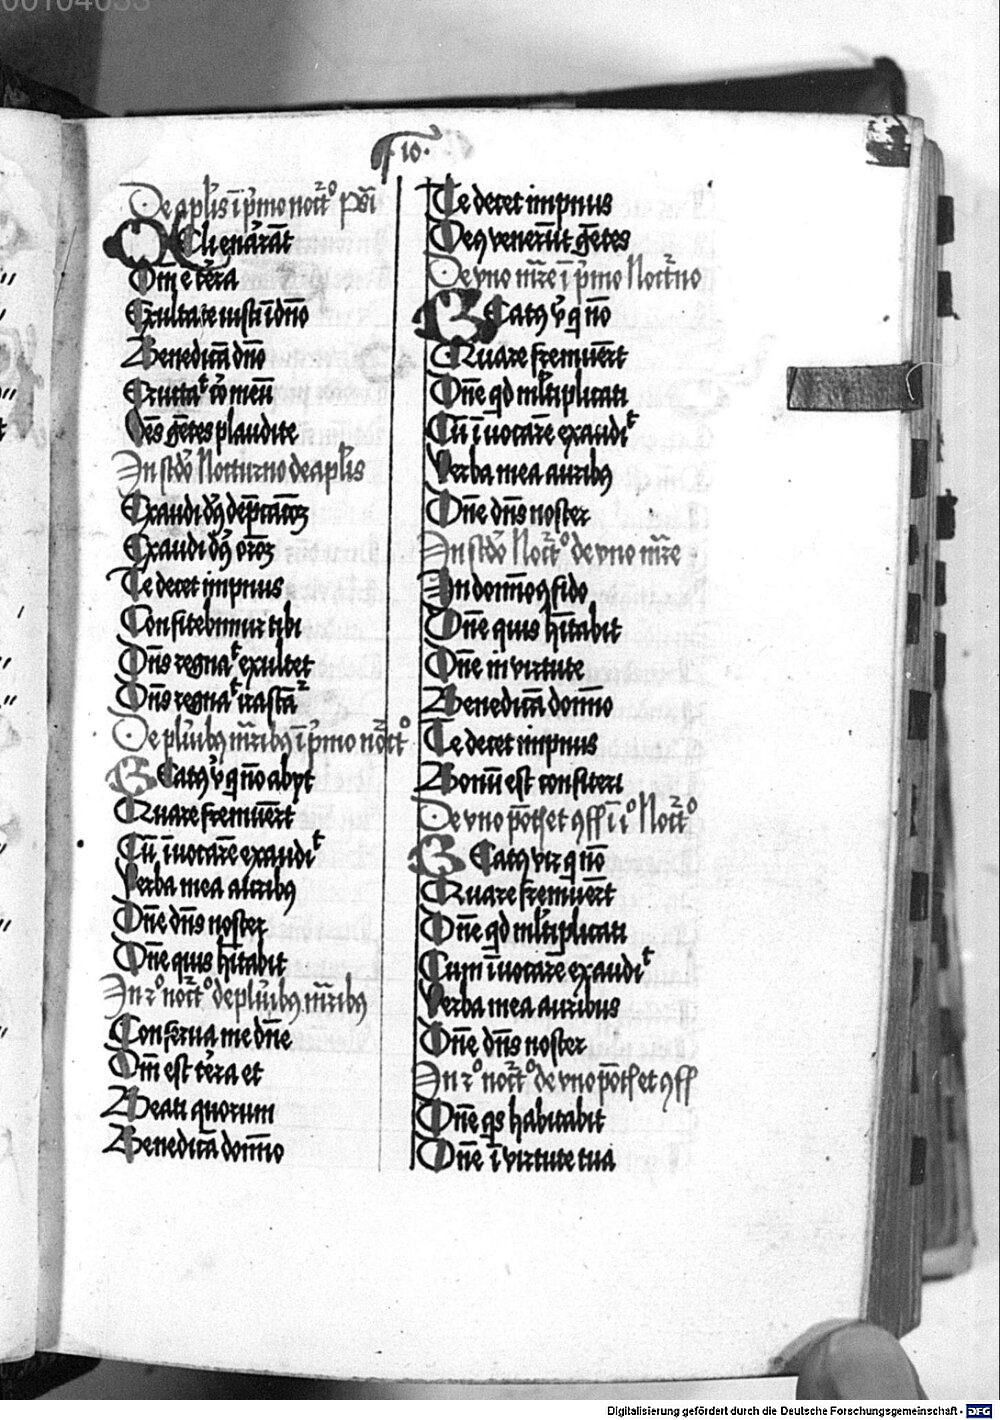 00104053
10.
De aplis i pmo noct͛o psi
Celi enarrāt
Dni ē t͛ra
Exultate iusti ī dn̄o
Benedicā dn̄o
Eructaᵗ cor meū
Om̄s gētes plaudite
In scdo Nocturno de aplis
Exaudi deꝰ dep̄cacōꝫ
Exaudi deꝰ orōꝫ
Te decet impnus
Confitebimur tibi
Dn̄s regnaᵗ exultet
Dn̄s regnaᵗ irascāᵗ
De pluribꝰ mr̄ibꝰ ī p̄mo noct͛o
Beatꝰ v̓ q nō abyt
Quare fremuer̄t
Cū īuocarē exaudiᵗ
Verba mea auribꝰ
Dn̄e dn̄s noster
Dn̄e quis hītabit
In 2º noct͛o de plurībꝰ mr̄ibꝰ
Conserua me dn̄e
Dn̄i est t͛ra et
Beati quorum
Benedicā domīo
Te decet impnus
Deꝰ venerūt gētes
De vno mr̄e ī p̄mo Noct͛no
Beatꝰ v̓ q nō
Quare fremuer̄t
Dn̄e qd mltiplicati
Cū īuocarē exaudiᵗ
Verba mea auribꝰ
Dn̄e dn̄s noster
In scdo Noct͛o de vno mr̄e
In domīo 9fido
Dn̄e quis hītabit
Dn̄e in virtute
Benedicā domīo
Te decet impnus
Bonū est confiteri
De vno pōt et 9ff ī iº Noct͛o
Beatꝰ vir q nō
Quare fremuer̄t
Dn̄e qd mltiplicati
Cum īuocarē exaudiᵗ
Verba mea auribus
Dn̄e dn̄s noster
In 2º noct͛o de vno pōt et 9ff
Dn̄e qs habitabit
Dn̄e ī virtute tua
Digitalisierung gefördert durch die Deutsche Forschungsgemeinschaft - DFG